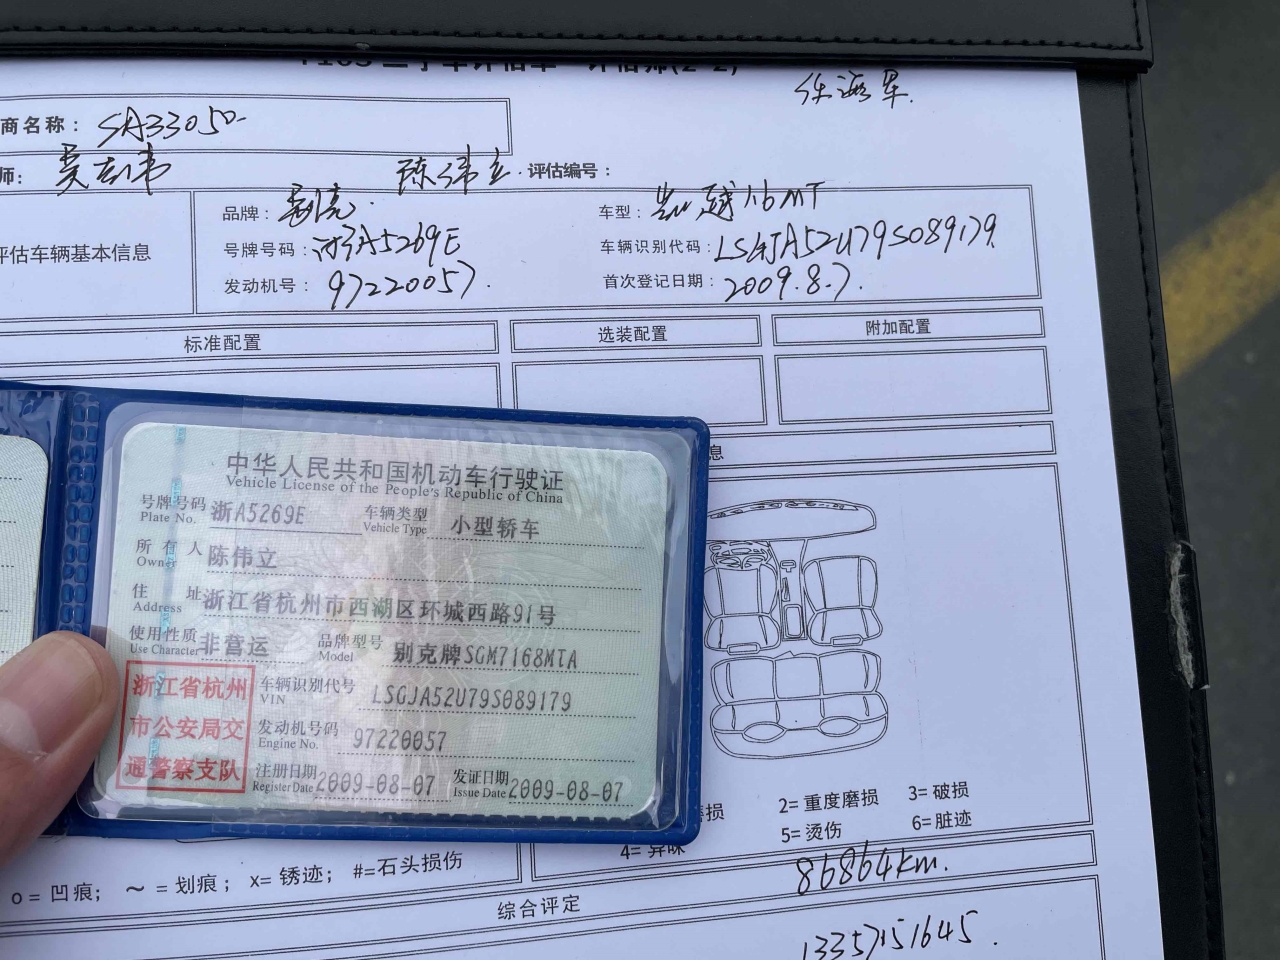 任海军.
商名称： SA33050
师： 吴志伟 陈伟立. 评估编号：
评估车辆基本信息
品牌： 别克. 车型： 凯越1.6MT
号牌号码： 浙A5269E 车辆识别代码： LSGJA52U79S089179
发动机号： 97220057. 首次登记日期： 2009.8.7.
标准配置 选装配置 附加配置
息
中华人民共和国机动车行驶证
Vehicle License of the People's Republic of China
号牌号码 浙A5269E 车辆类型 小型轿车
Plate No. Vehicle Type
所有人 陈伟立
Owner
住址 浙江省杭州市西湖区环城西路91号
Address
使用性质 非营运 品牌型号 别克牌SGM7168MTA
Use Character Model
浙江省杭州
市公安局交
通警察支队
车辆识别代号 LSGJA52U79S089179
VIN
发动机号码 97220057
Engine No.
注册日期 2009-08-07 发证日期 2009-08-07
Register Date Issue Date
磨损 2= 重度磨损 3= 破损
4= 异味 5= 烫伤 6= 脏迹
o = 凹痕； ～ = 划痕； x= 锈迹； #=石头损伤
86864km.
综合评定
13357151645.